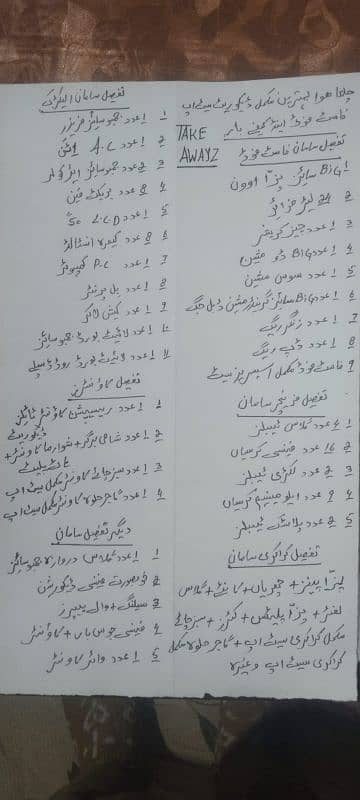 چلتا ہوا بہترین مکمل ڈیکوریٹ سیٹ اپ
فاسٹ فوڈ اینڈ کیفے بار
TAKE AWAYZ
تفصیل سامان فاسٹ فوڈ
1 BiG سائز پزا اوون
2 24 لیٹر فرائر
3 1 عدد چیز کریشر
4 1 عدد BiG ڈو مشین
5 1 عدد سوس مشین
6 1 عدد BiG سائز گرینڈر مشین ڈبل جگ
7 1 عدد زنگر ریک
8 1 عدد ڈپ ریک
9 فاسٹ فوڈ مکمل اسیسریز سیٹ
تفصیل فرنیچر سامان
1 4 عدد گلاس ٹیبلز
2 16 عدد فینسی کرسیاں
3 2 عدد لکڑی ٹیبلز
4 9 عدد ایلومینیم کرسیاں
5 2 عدد پلاسٹک ٹیبلز
تفصیل کراکری سامان
پزا پینز + چھریاں + کانٹے + گلاس
لفٹر + پزا پلیٹس + کٹرز + سبز چائے
مکمل کراکری سیٹ اپ + گاجر حلوہ مکمل
کراکری سیٹ اپ وغیرہ
تفصیل سامان الیکٹرک
1 1 عدد جمبو سائز فریزر
2 1 عدد A.C 1 ٹن
3 2 عدد جمبو سائز ایئر کولر
4 8 عدد بریکٹ فین
5 L.C.D 50
6 8 عدد کیمرہ انسٹالڈ
7 P.C کمپیوٹر
8 1 عدد بل پرنٹر
9 1 عدد کیش لاکر
10 1 عدد لائیٹ بورڈ جمبو سائز
11 1 عدد لائیٹ بورڈ روڈ ڈسپلے
تفصیل کاؤنٹرز
1 1 عدد ریسیپشن کاؤنٹر ٹائلز ڈیکوریٹ
2 1 عدد شامی برگر + شوارما کاؤنٹر +
3 1 عدد سبز چائے کاؤنٹر مکمل سیٹ اپ
4 1 عدد گاجر حلوہ کاؤنٹر مکمل سیٹ اپ
دیگر تفصیل سامان
1 1 عدد گلاس دروازہ جمبو سائز
2 خوبصورت فینسی ڈیکوریشن
3 سیلنگ + وال پیپرز
4 فینسی جوس بار + کاؤنٹر
5 1 عدد واٹر کاؤنٹر